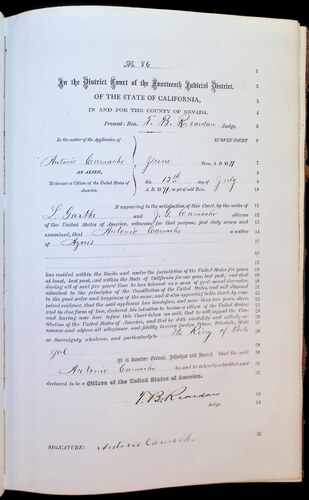 No 86
In the District Court of the Fourteenth Judicial District,
OF THE STATE OF CALIFORNIA,
IN AND FOR THE COUNTY OF NEVADA.
Present: Hon. T. B. Reardon Judge.
In the matter of the Application of
IN OPEN COURT
Antonio Camacho
June Term, A. D. 1871
AN ALIEN,
this 12th day of July
To become a Citizen of the United States of America.
A. D. 1871, as yet of said Term.
It appearing to the satisfaction of this Court, by the oaths of
L. Garthe and J. G. Camacho citizens
of the United States of America, witnesses for that purpose, first duly sworn and
examined, that Antonio Camacho a native
of Azores
has resided within the limits and under the jurisdiction of the United States five years
at least, last past, and within the State of California for one year, last past; and that
during all of said five years' time he has behaved as a man of good moral character,
attached to the principles of the Constitution of the United States, and well disposed
to the good order and happiness of the same; and it also appearing to the Court, by competent
evidence, that the said applicant has heretofore, and more than two years since,
and in due form of law, declared his intention to become a citizen of the United States;
and having now here before this Court taken an oath, that he will support the Constitution
of the United States of America, and that he doth absolutely and entirely renounce
and abjure all allegiance and fidelity to every foreign Prince, Potentate, State
or Sovereignty whatever, and particularly to the King of Portu
gal
It is therefore Ordered, Adjudged and Decreed, that the said
Antonio Camacho be, and he is hereby admitted and
declared to be a Citizen of the United States of America.
T. B. Reardon
Judge.
SIGNATURE: Antone Camacho